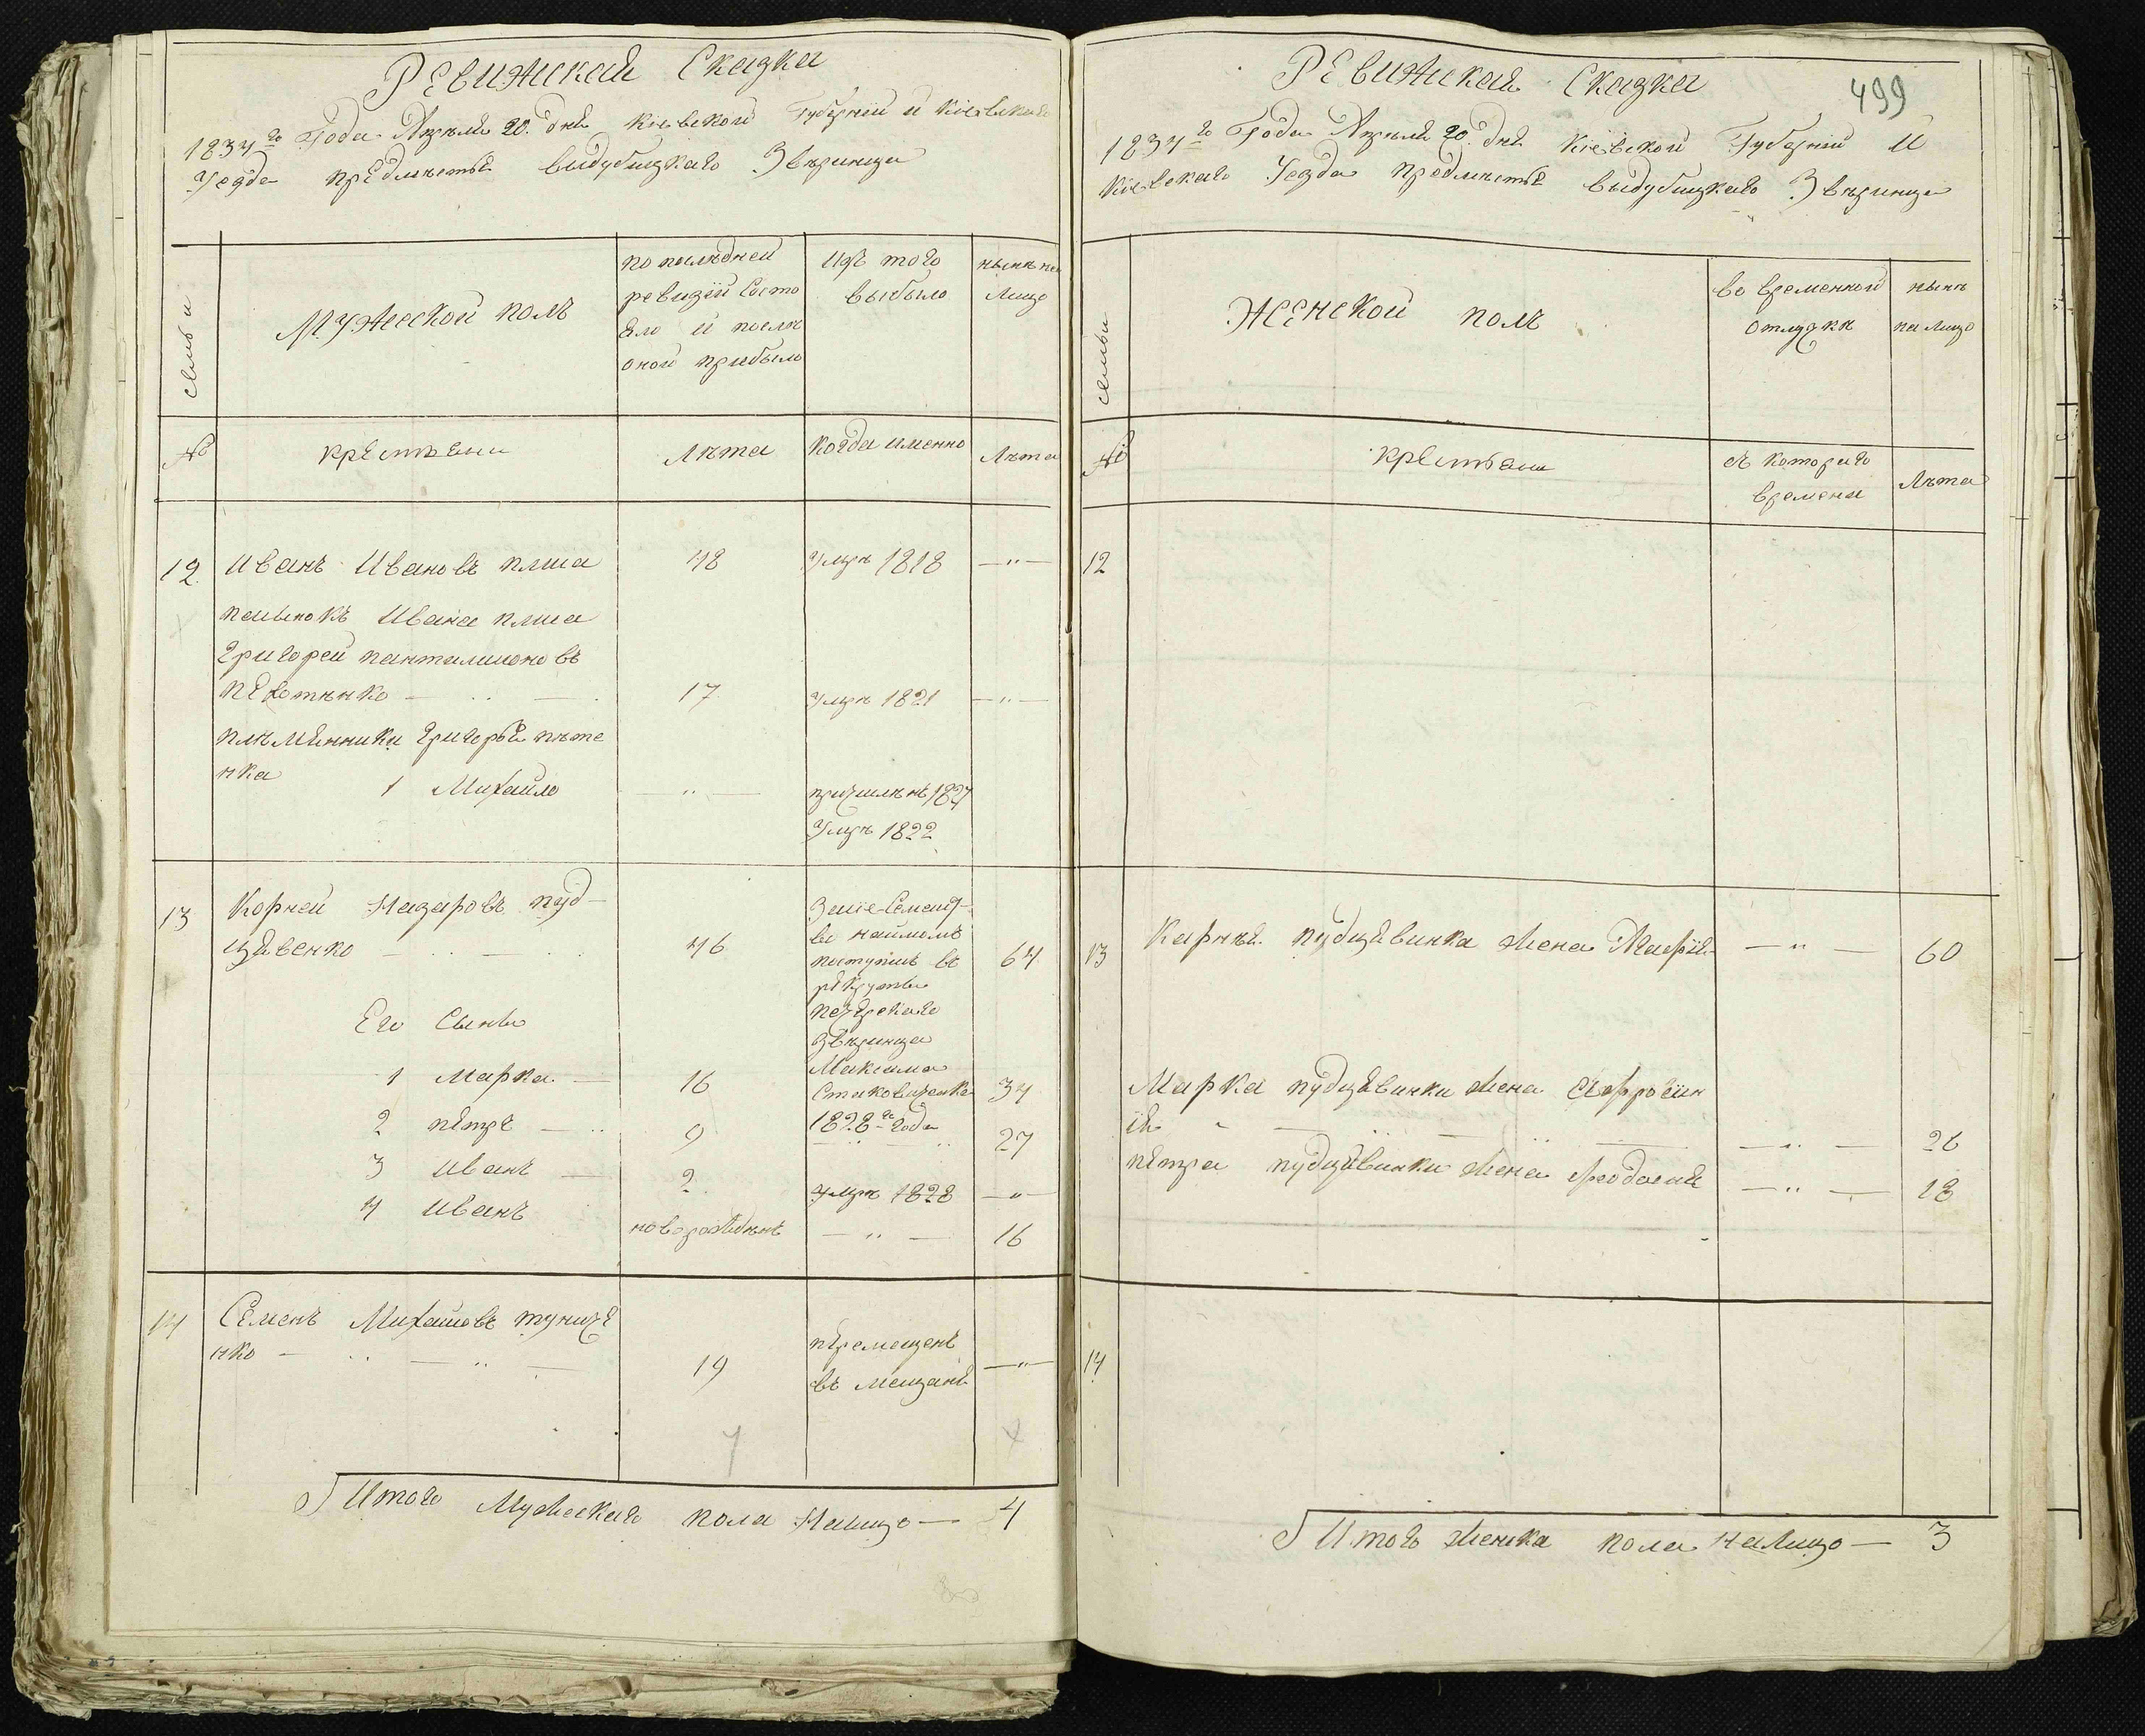 РЕвижская Сказка
1834го Года Апреля 20. дня кіевской Губерніи и кіевскаго
Уезда прЕдместья выдубицкаго Звѣринца
семьи
Мужеской полъ
по последней
ревизіи Состо
яло и после
оной прибыло
Изъ того
выбыло
нынѣ на
Лицо
№
крестьяни
Лѣта
Когда именно
Лѣта
12.
Иванъ Ивановъ плиша
48
умре 1818
— " —
пасынокъ Ивана плиша
Григорей пантилимоновъ
17
умре 1821
— " —
племенники Григорья пете
нка
1 Михайло
— " —
Умре 1822
13
Корней Назаровъ пуд-
цявенко
46
наймомъ
поступилъ въ
рекруты
печерскаго
звѣринца
Максима
1828го года
64
Его Сыны
1 Марка
16
34
2 пЕтръ
9
27
3 Иванъ
2
умре 1828
— " —
4 Иванъ
новорожденъ
— " —
16
14
Семенъ Михайловъ туничЕ
нко
19
пЕремещенъ
въ мещанЕ
— " —
7
Итого Мужескаго пола Налицо — 4
РЕвижская Сказка
499
1834го Года Апреля 20. дня кіевской Губерніи И
Кіевскаго Уезда предместья выдубицкаго Звѣринца
семьи
ЖЕнской полъ
во временной
отлучке
нынѣ
на лицо
№
крестьяни
съ котораго
времени
Лѣта
12
13
Карнея пудцявинка жена Марія
— " —
60
Марка пудцявинки жена Афросин
ія
— " —
26
пЕтра пудцявинки жена Феодосия
— " —
18
14
Итого женска пола налицо — 3